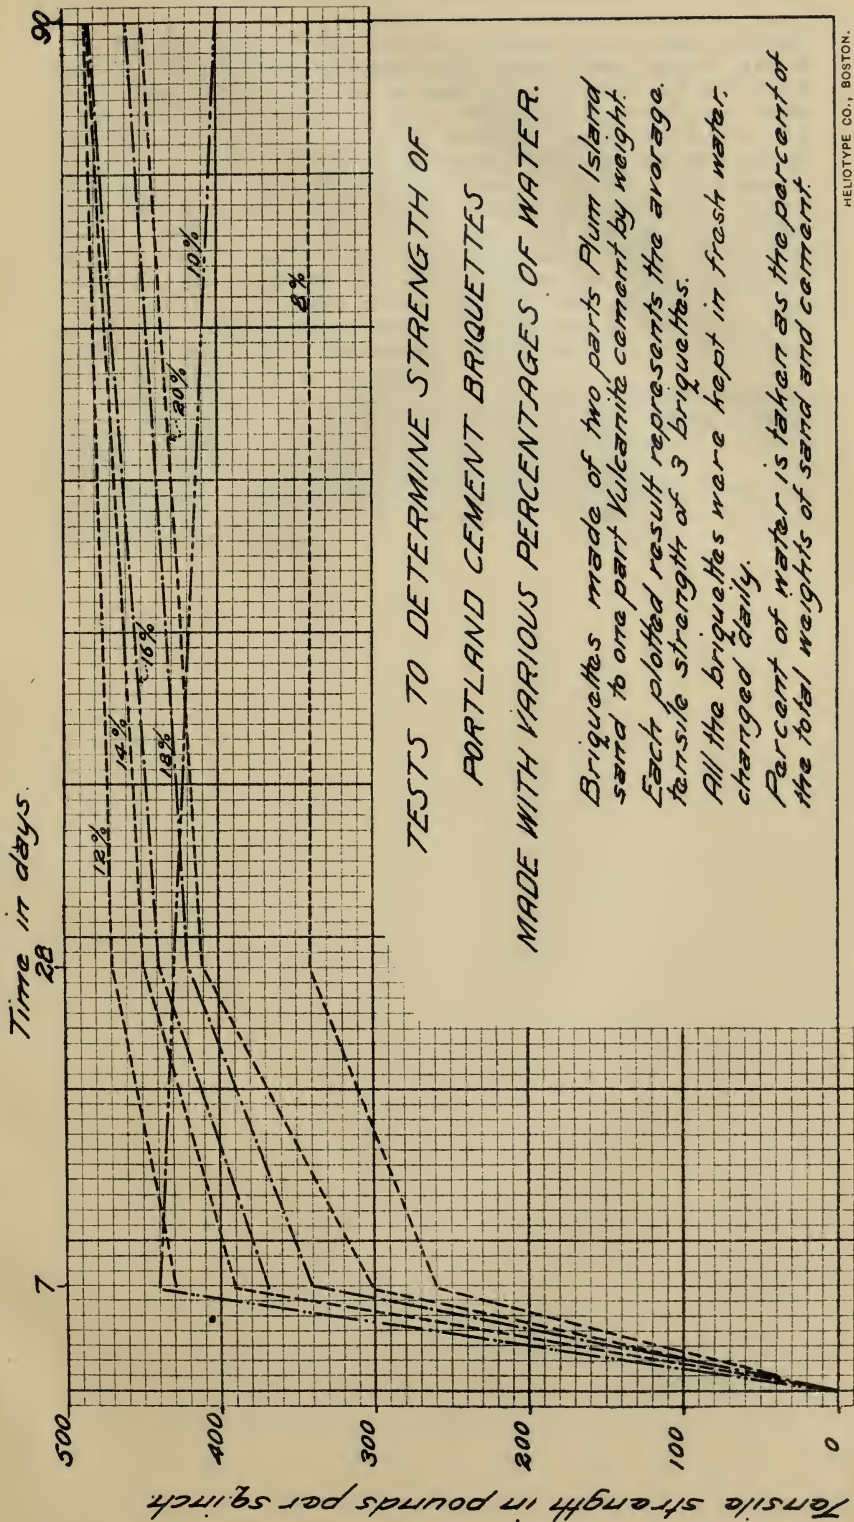 Time in days.
7
28
90
Tensile strength in pounds per sq. inch.
500
400
300
200
100
0
12%
14%
16%
18%
20%
10%
8%
TESTS TO DETERMINE STRENGTH OF
PORTLAND CEMENT BRIQUETTES
MADE WITH VARIOUS PERCENTAGES OF WATER.
Briquettes made of two parts Plum Island
sand to one part Vulcanite cement by weight.
Each plotted result represents the avarage
tensile strength of 3 briquettes.
All the briquettes were kept in fresh water,
changed daily.
Percent of water is taken as the percent of
the total weights of sand and cement.
HELIOTYPE CO., BOSTON.